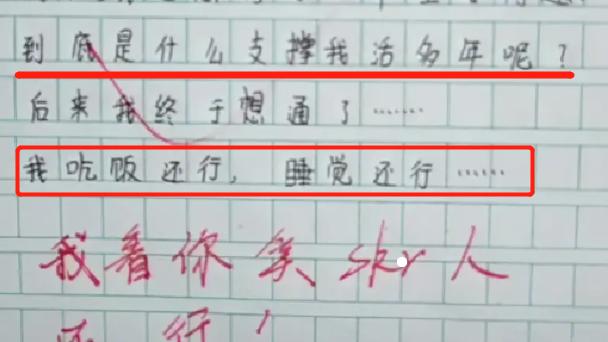 到底是什么支撑我活多年呢？
后来我终于想通了……
我吃饭还行，睡觉还行……
我看你笑skr人
还行！